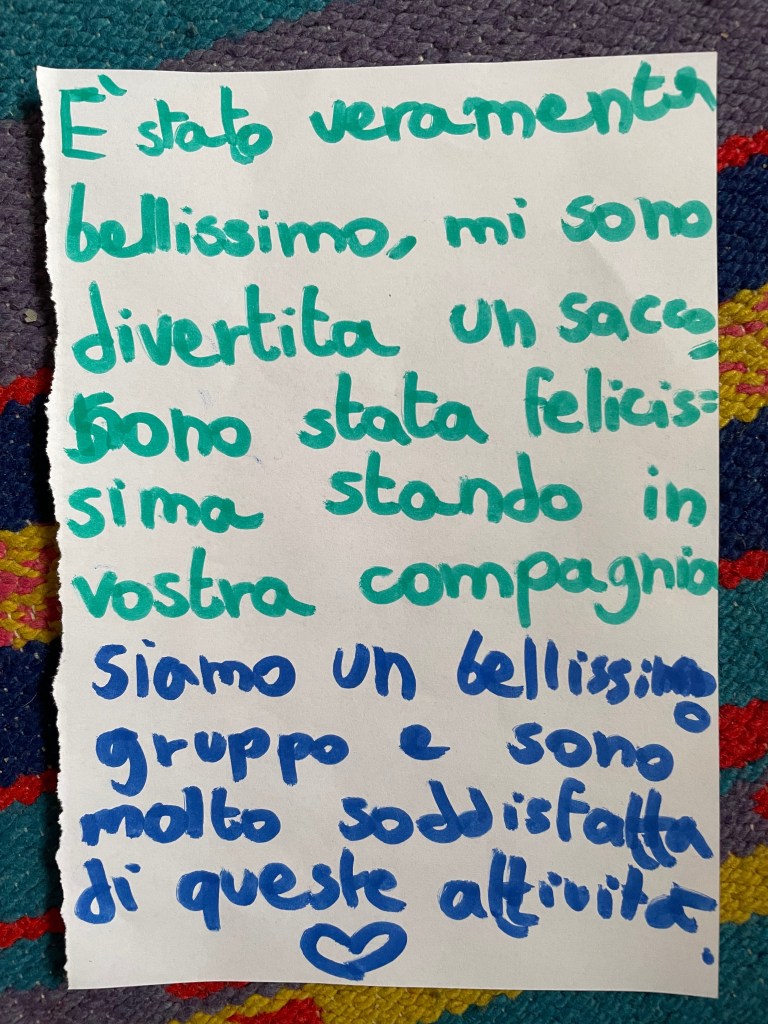 E' stato veramente
bellissimo, mi sono
divertita un sacco,
sono stata felicis=
sima stando in
vostra compagnia
siamo un bellissimo
gruppo e sono
molto soddisfatta
di queste attività.